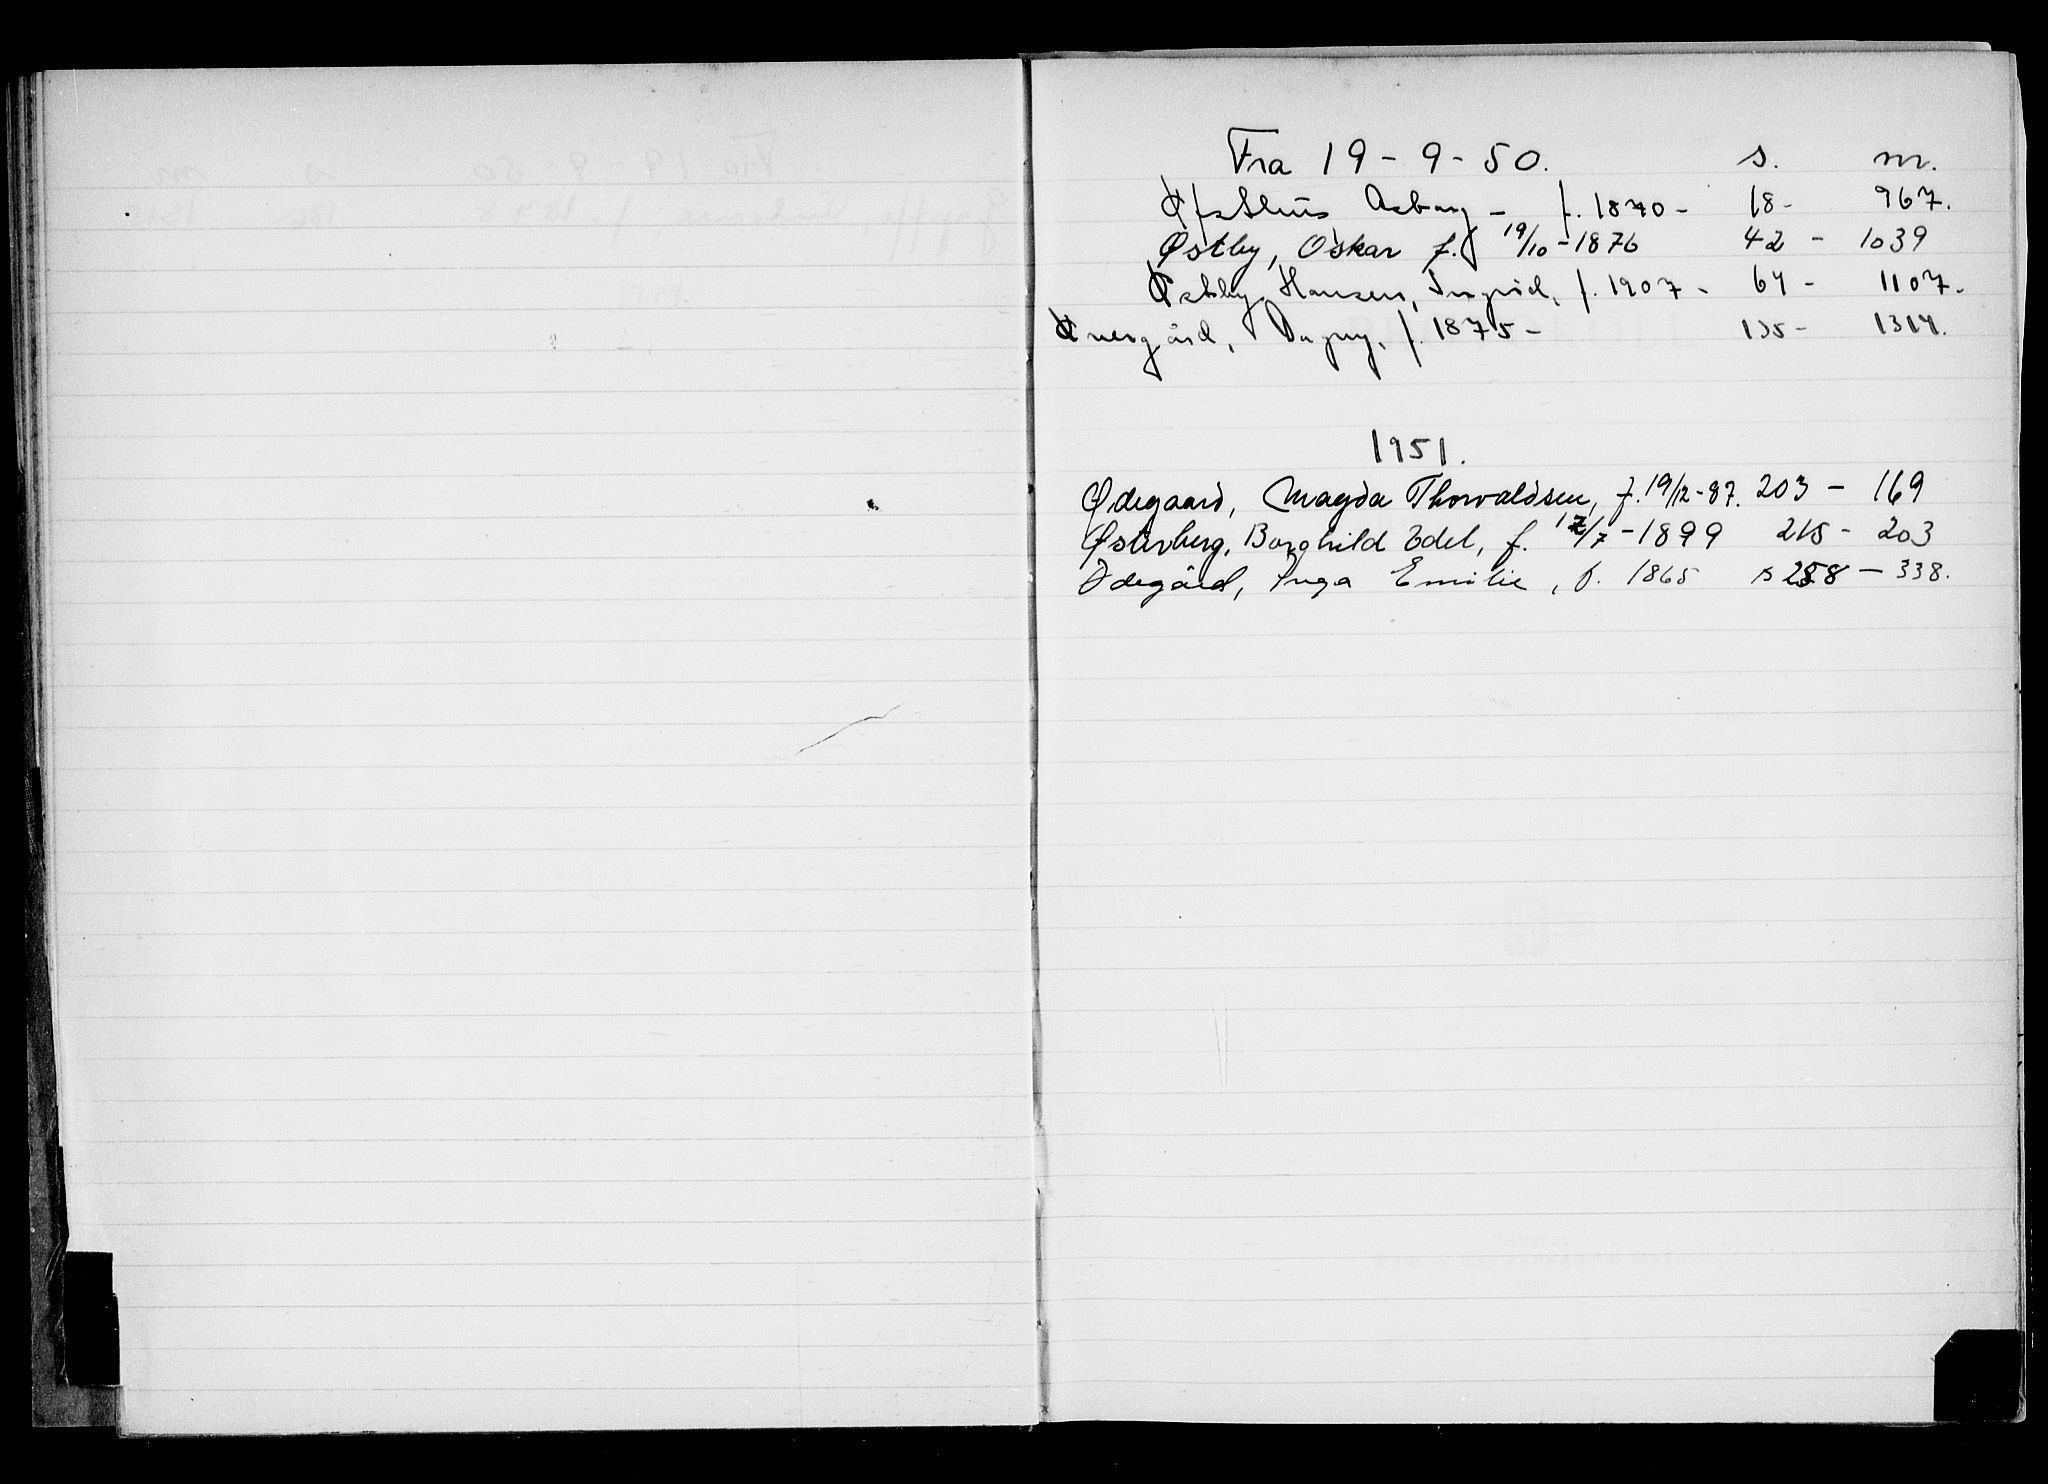 Fra 19-9-50. s. m.
Asbury - f. 1870 - 18 - 967.
Østby, Oskar f. 19/10-1876 42 - 1039
Østby Hansen, Ingrid, f. 1907 - 64 - 1107.
Øvergård, Dagny, f. 1875 - 135 - 1314.
1951.
Ødegaard, Magda Thorvaldsen, f. 19/12-87. 203 - 169
Østerberg, Borghild Edel, f. 17/7-1899 215 - 203
Ødegård, Inga Emilie, f. 1865 s 258 - 338.